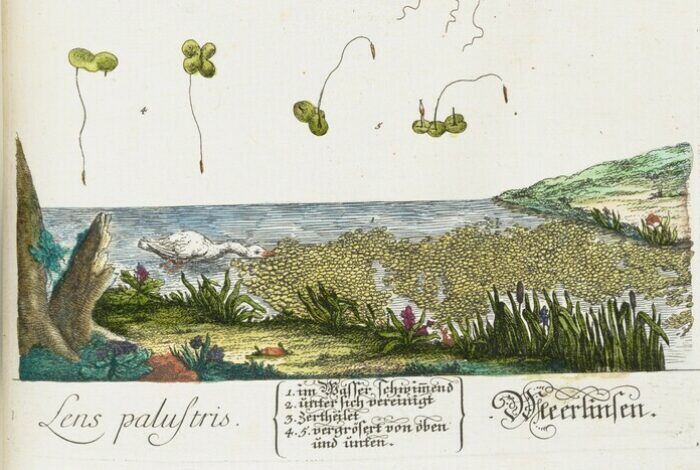 4
5
Lens paluſtris.
1. im Waſſer ſchwim̅end
2. unter ſich vereinigt
3. Zertheilet
4. 5. vergröſert von oben
und unten.
Meerlinſen.